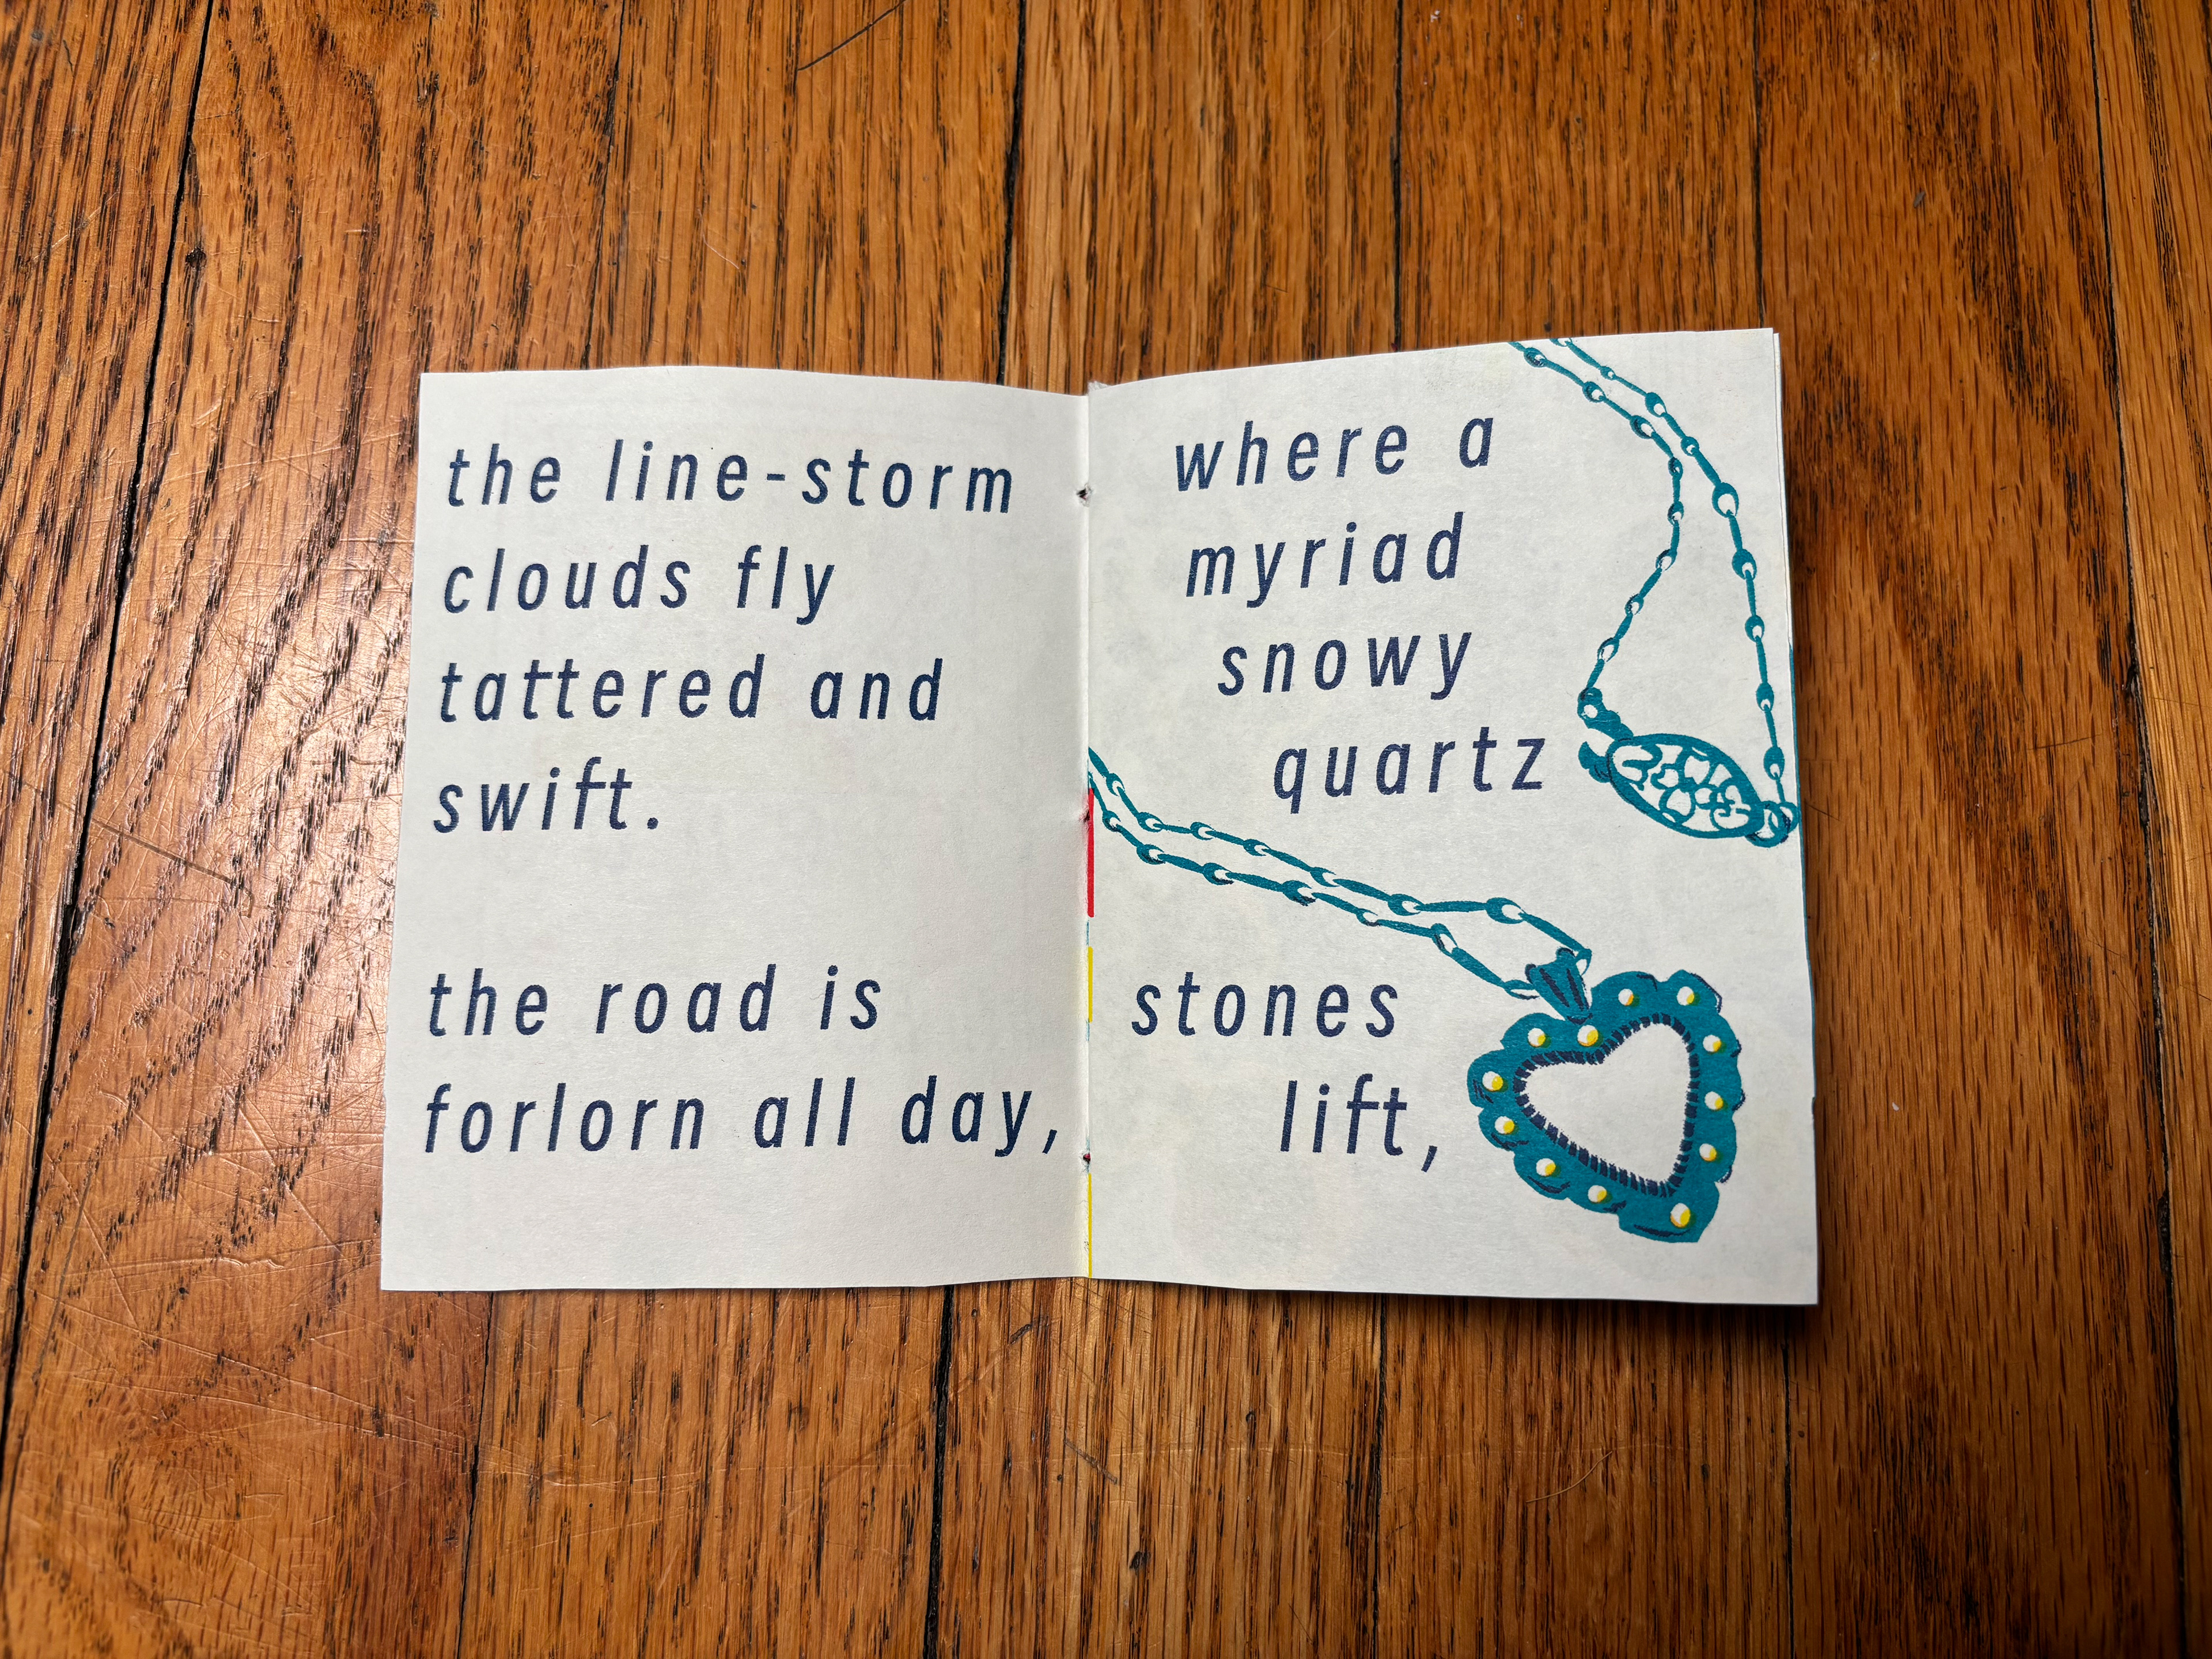 the line-storm
clouds fly
tattered and
swift.
the road is
forlorn all day,
where a
myriad
snowy
quartz
stones
lift,